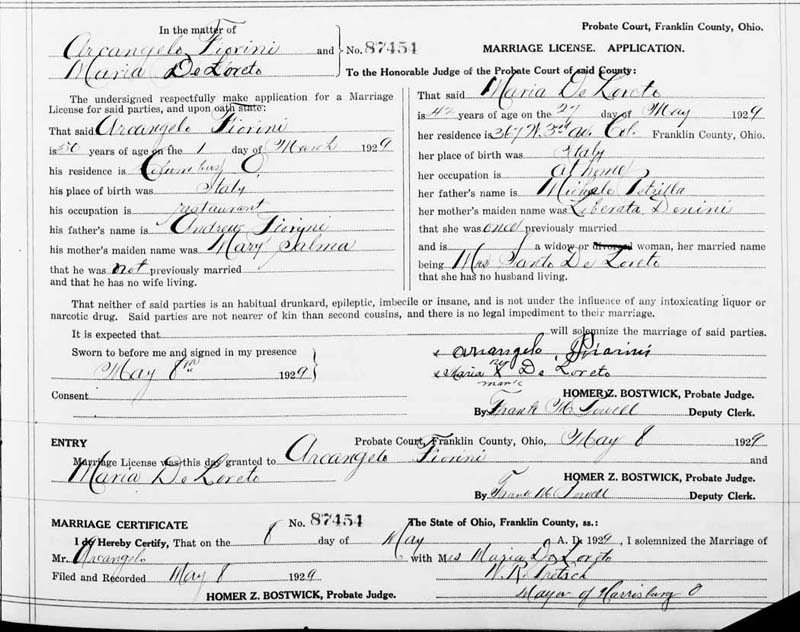 In the matter of
Arcangelo Fiorini
and
Maria De Loreto
No. 87454
Probate Court, Franklin County, Ohio.
MARRIAGE LICENSE. APPLICATION.
To the Honorable Judge of the Probate Court of said County:
The undersigned respectfully make application for a Marriage
License for said parties, and upon oath state:
That said Arcangelo Fiorini
is 50 years of age on the 1 day of March 1929
his residence is Columbus O
his place of birth was Italy
his occupation is restaurant
his father's name is Andrew Fiorini
his mother's maiden name was Mary Salma
that he was not previously married
and that he has no wife living.
That said Maria De Loreto
is 42 years of age on the 27 day of May 1929
her residence is 367 W. 3rd av. Col. Franklin County, Ohio.
her place of birth was Italy
her occupation is at home
her father's name is Michele Petrilla
her mother's maiden name was Liberata Donini
that she was once previously married
and is a widow or divorced woman, her married name
being Mrs Santo De Loreto
that she has no husband living.
That neither of said parties is an habitual drunkard, epileptic, imbecile or insane, and is not under the influence of any intoxicating liquor or
narcotic drug. Said parties are not nearer of kin than second cousins, and there is no legal impediment to their marriage.
It is expected that will solemnize the marriage of said parties.
Sworn to before me and signed in my presence
May 8th 1929
Consent
x Arcangelo Fiorini
x Maria X De Loreto
mark
HOMER Z. BOSTWICK, Probate Judge.
By Frank M. Powell Deputy Clerk.
ENTRY
Probate Court, Franklin County, Ohio, May 8 1929
Marriage License was this day granted to Arcangelo Fiorini and
Maria De Loreto
HOMER Z. BOSTWICK, Probate Judge.
By Frank M. Powell Deputy Clerk.
MARRIAGE CERTIFICATE
No. 87454
The State of Ohio, Franklin County, ss.:
I do Hereby Certify, That on the 8 day of May A. D. 1929, I solemnized the Marriage of
Mr. Arcangelo with Mrs Maria De Loreto
Filed and Recorded May 8 1929
W. R.
Mayor of Harrisburg O
HOMER Z. BOSTWICK, Probate Judge.